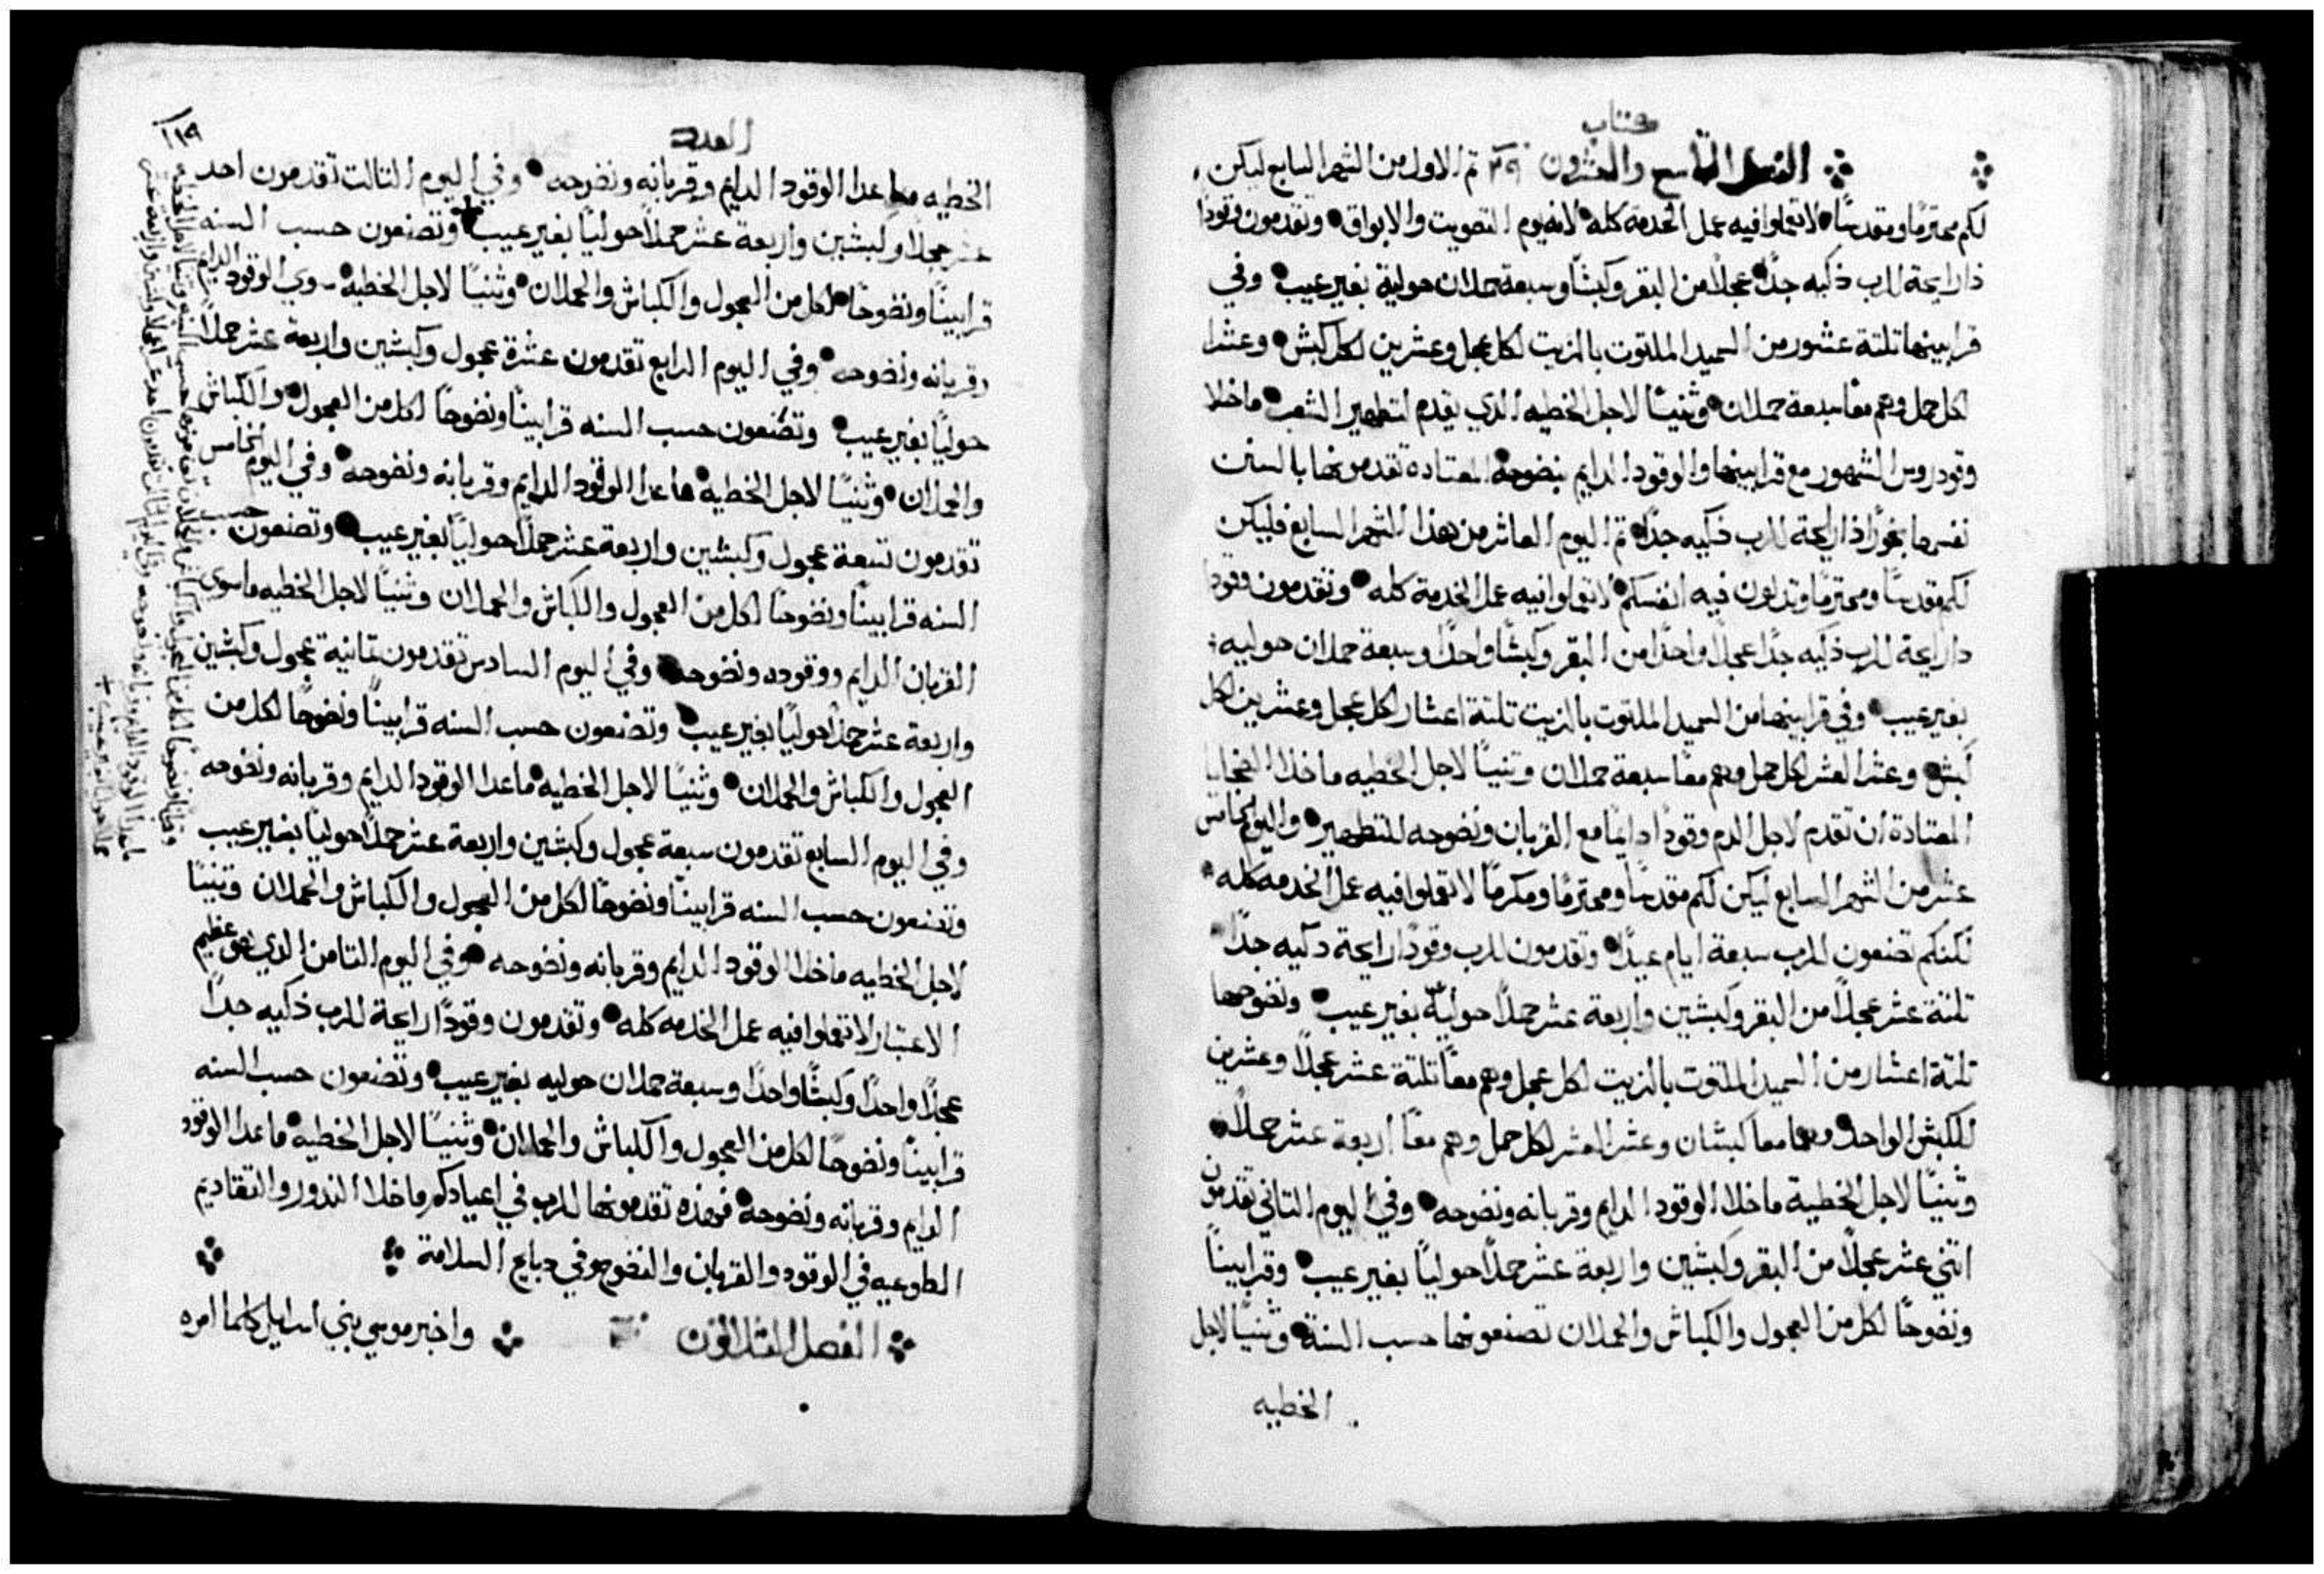 كتاب
الفصل التاسع والعشرون ٢٩ ثم الاول من الشهر السابع ليكن
لكم محترمًا ومقدسًا لا تعملوا فيه عمل الخدمة كله لانه يوم التصويت والابواق وتقدمون وقودًا
ذا رايحة للرب ذكيه جدًا عجلًا من البقر وكبشًا وسبعة حملان حولية بغير عيب وفي
قرابينها تلتة عشور من السميد الملتوت بالزيت لكل عجل وعشرين لكل كبش وعشرا
لكل حمل وهم معًا سبعة حملان وثنيًا لاجل الخطيه الذي يقدم لتطهير الشعب ما خلا
وقود روس الشهور مع قرابينها والوقود الدايم بنضوحه المعتادة تقدمونها بالسنن
نفسها بخورًا ذا رايحة للرب ذكيه جدًا ثم اليوم العاشر من هذا الشهر السابع فليكن
لكم مقدسًا ومحترمًا وتدلون فيه انفسكم لا تعملوا فيه عمل الخدمة كله وتقدمون وقودا
دا رايحة للرب ذكيه جدًا عجلًا واحدًا من البقر وكبشًا واحدًا وسبعة حملان حوليه
بغير عيب وفي قرابينها من السميد الملتوت بالزيت تلتة اعشار لكل عجل وعشرين لكل
كبش وعشر العشر لكل حمل وهم معًا سبعة حملان وثنيًا لاجل الخطيه ما خلا الضحايا
المعتادة ان تقدم لاجل الدم وقودًا دايمًا مع القربان ونضوحه للتطهير واليوم الخامس
عشر من الشهر السابع ليكن لكم مقدسًا ومحترمًا ومكرمًا لا تعملوا فيه عمل الخدمه كله
لكنكم تصنعون للرب سبعة ايام عيدًا وتقدمون للرب وقودًا رايحة دكيه جدًا
تلتة عشر عجلًا من البقر وكبشين واربعة عشر حملًا حوليّة بغير عيب ونضوحها
تلتة اعشار من السميد الملتوت بالزيت لكل عجل وهم معًا تلتة عشر عجلًا وعشرين
للكبش الواحد وهما معا كبشان وعشر العشر لكل حمل وهم معًا اربعة عشر حملًا
وثنيًا لاجل الخطية ما خلا الوقود الدايم وقربانه ونضوحه وفي اليوم التاني تقدمون
اتني عشر عجلًا من البقر وكبشين واربعة عشر حملًا حوليًا بغير عيب وقرابينًا
ونضوحًا لكل من العجول والكباش والحملان تصنعونها حسب السنة وثنيًا لاجل
الخطيه
العدد
١١٩
الخطيه ما عدا الوقود الدايم وقربانه ونضوحه وفي اليوم التالت تقدمون احد
عشر عجلًا وكبشين واربعة عشر حملًا حوليًا بغير عيب وتصنعون حسب السنه
قرابينًا ونضوحًا لكل من العجول والكباش والحملان وثنيًا لاجل الخطيه الوقود الدايم
وقربانه ونضوحه وفي اليوم الرابع تقدمون عشرة عجول وكبشين واربعة عشر حملًا
حوليًا بغير عيب وتصنعون حسب السنه قرابينًا ونضوحًا لكل من العجول والكباش
والحملان وثنيًا لاجل الخطيه ما عدا الوقود الدايم وقربانه ونضوحه وفي اليوم الخامس
تقدمون تسعة عجول وكبشين واربعة عشر حملًا حوليًا بغير عيب وتصنعون حسب
السنه قرابينًا ونضوحًا لكل من العجول والكباش والحملان وثنيًا لاجل الخطيه ما سوى
القربان الدايم ووقوده ونضوحه وفي اليوم السادس تقدمون تمانية عجول وكبشين
واربعة عشر حملًا حوليًا بغير عيب وتصنعون حسب السنه قرابينًا ونضوحًا لكل من
العجول والكباش والحملان وثنيًا لاجل الخطيه ما عدا الوقود الدايم وقربانه ونضوحه
وفي اليوم السابع تقدمون سبعة عجول وكبشين واربعة عشر حملًا حوليًا بغير عيب
وتصنعون حسب السنه قرابينًا ونضوحًا لكل من العجول والكباش والحملان وثنيًا
لاجل الخطيه ما خلا الوقود الدايم وقربانه ونضوحه وفي اليوم التامن الذي هو عظيم
الاعتبار لا تعملوا فيه عمل الخدمه كله وتقدمون وقودًا رايحة للرب ذكيه جدًا
عجلًا واحدًا وكبشًا واحدًا وسبعة حملان حوليه بغير عيب وتصنعون حسب السنه
قرابينًا ونضوحًا لكل من العجول والكباش والحملان وثنيًا لاجل الخطيه ما عدا الوقود
الدايم وقربانه ونضوحه فهذه تقدمونها للرب في اعيادكم ما خلا الندور والتقاديم
الطوعيه في الوقود والقربان والنضوح وفي دبايح السلامة
الفصل الثلاثون واخبر موسي بني اسرايل كلما امره